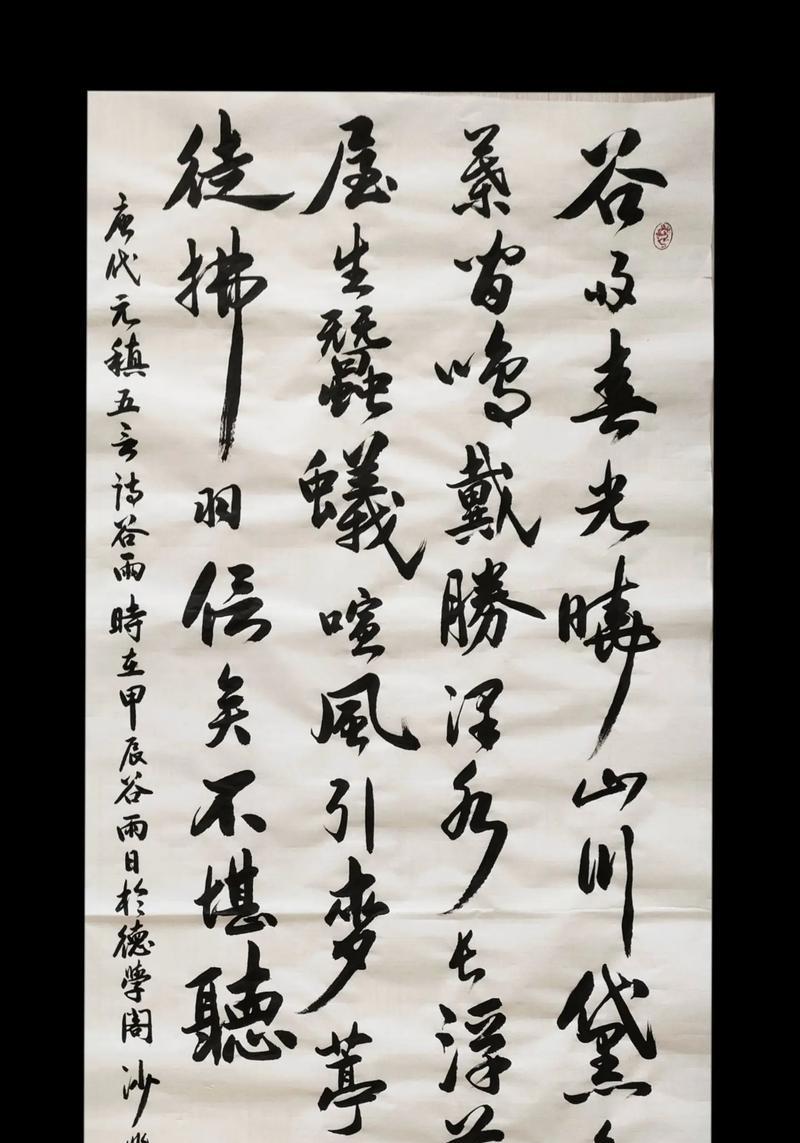 谷雨春光曉山川黛
葉間鳴戴勝澤水長浮
屋生蠶蟻喧風引麥葶
徒拂羽信矣不堪聽
唐代元稹五言詩谷雨時在甲辰谷雨日於德學閣沙